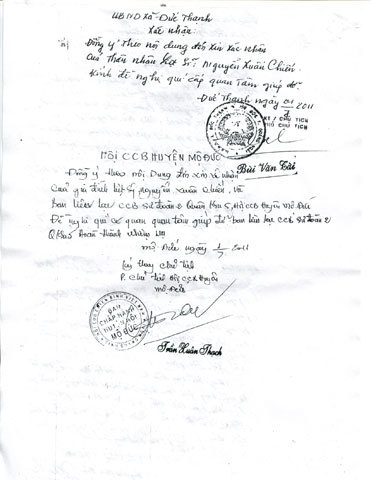 UBND Xã Đức Thanh
Xác nhận.
Đồng ý theo nội dung đơn xin xác nhận
của thân nhân Liệt Sĩ: Nguyễn Xuân Chiến.
Kính đề nghị quí cấp quan tâm giúp đỡ.
Đức Thanh ngày 01/7 2011
KT/ CHỦ TỊCH
PHÓ CHỦ TỊCH
Bùi Văn Tài
HỘI CCB HUYỆN MỘ ĐỨC
Đồng ý theo nội dung đơn xin xác nhận
của gia đình liệt sĩ Nguyễn Xuân Chiến, và
ban liên lạc CCB sư đoàn 2 Quân khu 5, Hội CCB huyện Mộ Đức
Đề nghị quí cơ quan quan tâm giúp để ban liên lạc CCB sư đoàn 2
hoàn thành nhiệm vụ
Mộ Đức ngày 1/7 2011
Ký thay chủ tịch
P. Chủ tịch Hội CCB huyện
Mộ Đức
BAN
CHẤP HÀNH
HUYỆN HỘI
MỘ ĐỨC
Trần Xuân Thạch